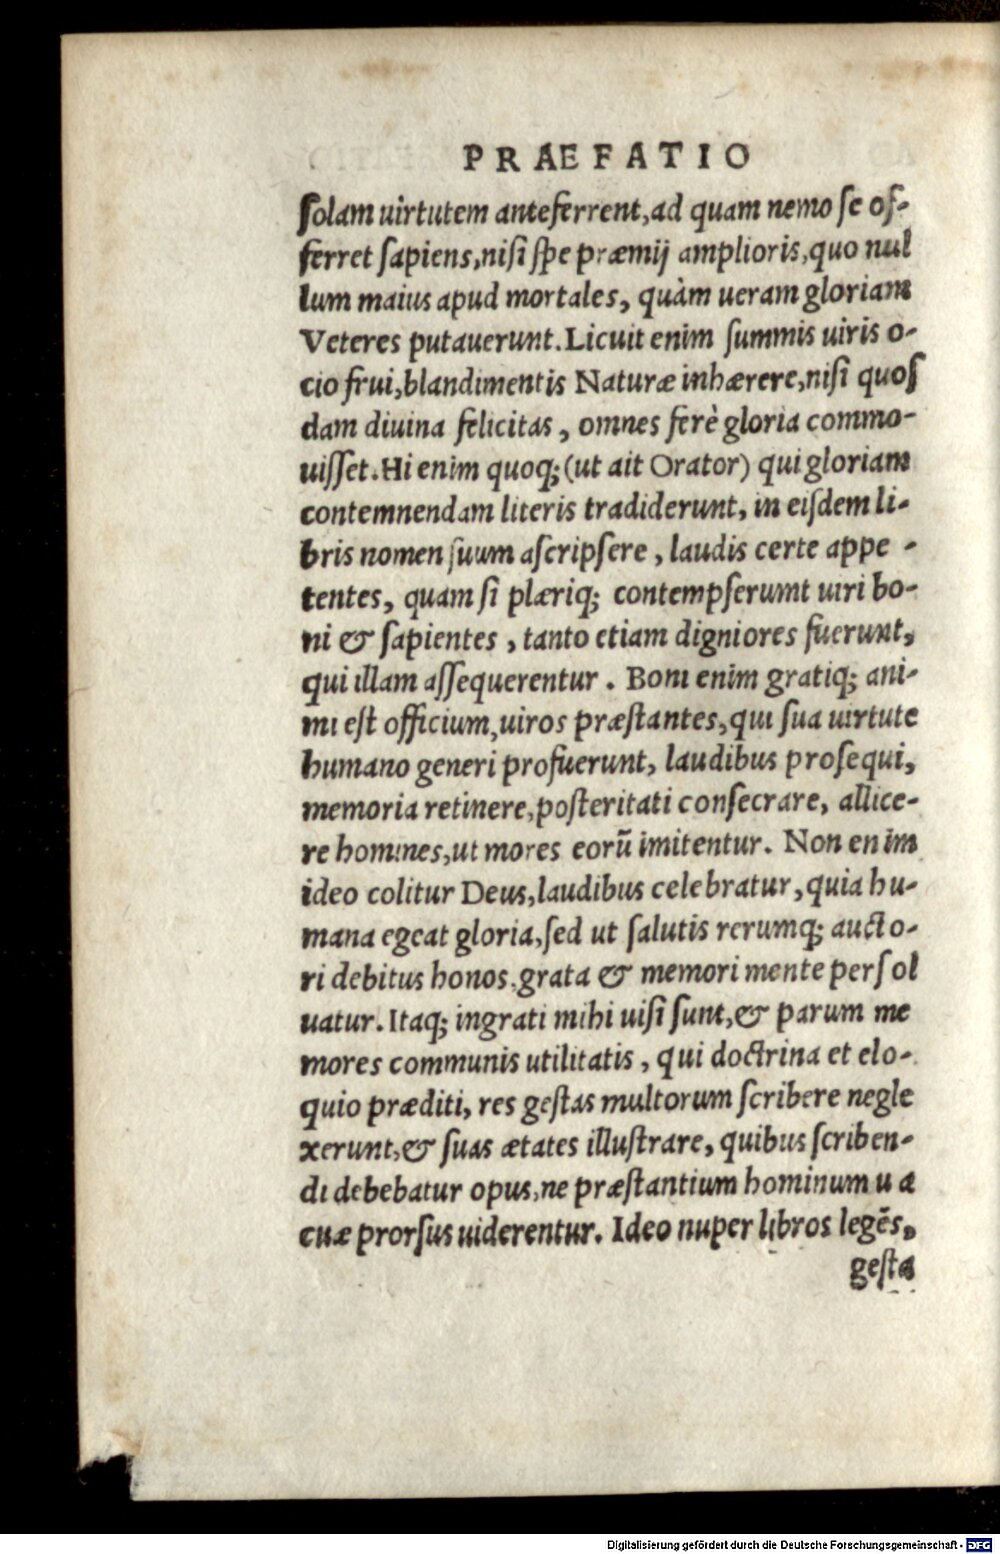 PRAEFATIO
ſolam uirtutem anteferrent, ad quam nemo ſe of-
ferret ſapiens, niſi ſpe præmij amplioris, quo nul
lum maius apud mortales, quàm ueram gloriam
Veteres putauerunt. Licuit enim ſummis uiris o-
cio frui, blandimentis Naturæ inhærere, niſi quoſ
dam diuina felicitas, omnes ferè gloria commo-
uiſſet. Hi enim quoq; (ut ait Orator) qui gloriam
contemnendam literis tradiderunt, in eiſdem li-
bris nomen ſuum aſcripſere, laudis certe appe-
tentes, quam ſi plæriq; contempſerunt uiri bo-
ni & ſapientes, tanto etiam digniores fuerunt,
qui illam aſſequerentur. Boni enim gratiq; ani-
mi eſt officium, uiros præſtantes, qui ſua uirtute
humano generi profuerunt, laudibus proſequi,
memoria retinere, poſteritati conſecrare, allice-
re homines, ut mores eorũ imitentur. Non enim
ideo colitur Deus, laudibus celebratur, quia hu-
mana egeat gloria, ſed ut ſalutis rerumq; aucto-
ri debitus honos, grata & memori mente perſol
uatur. Itaq; ingrati mihi uiſi ſunt, & parum me
mores communis utilitatis, qui doctrina et elo-
quio præditi, res geſtas multorum ſcribere negle
xerunt, & ſuas ætates illuſtrare, quibus ſcriben-
di debebatur opus, ne præſtantium hominum ua
cuæ prorſus uiderentur. Ideo nuper libros legẽs,
geſta
Digitalisierung gefördert durch die Deutsche Forschungsgemeinschaft - DFG